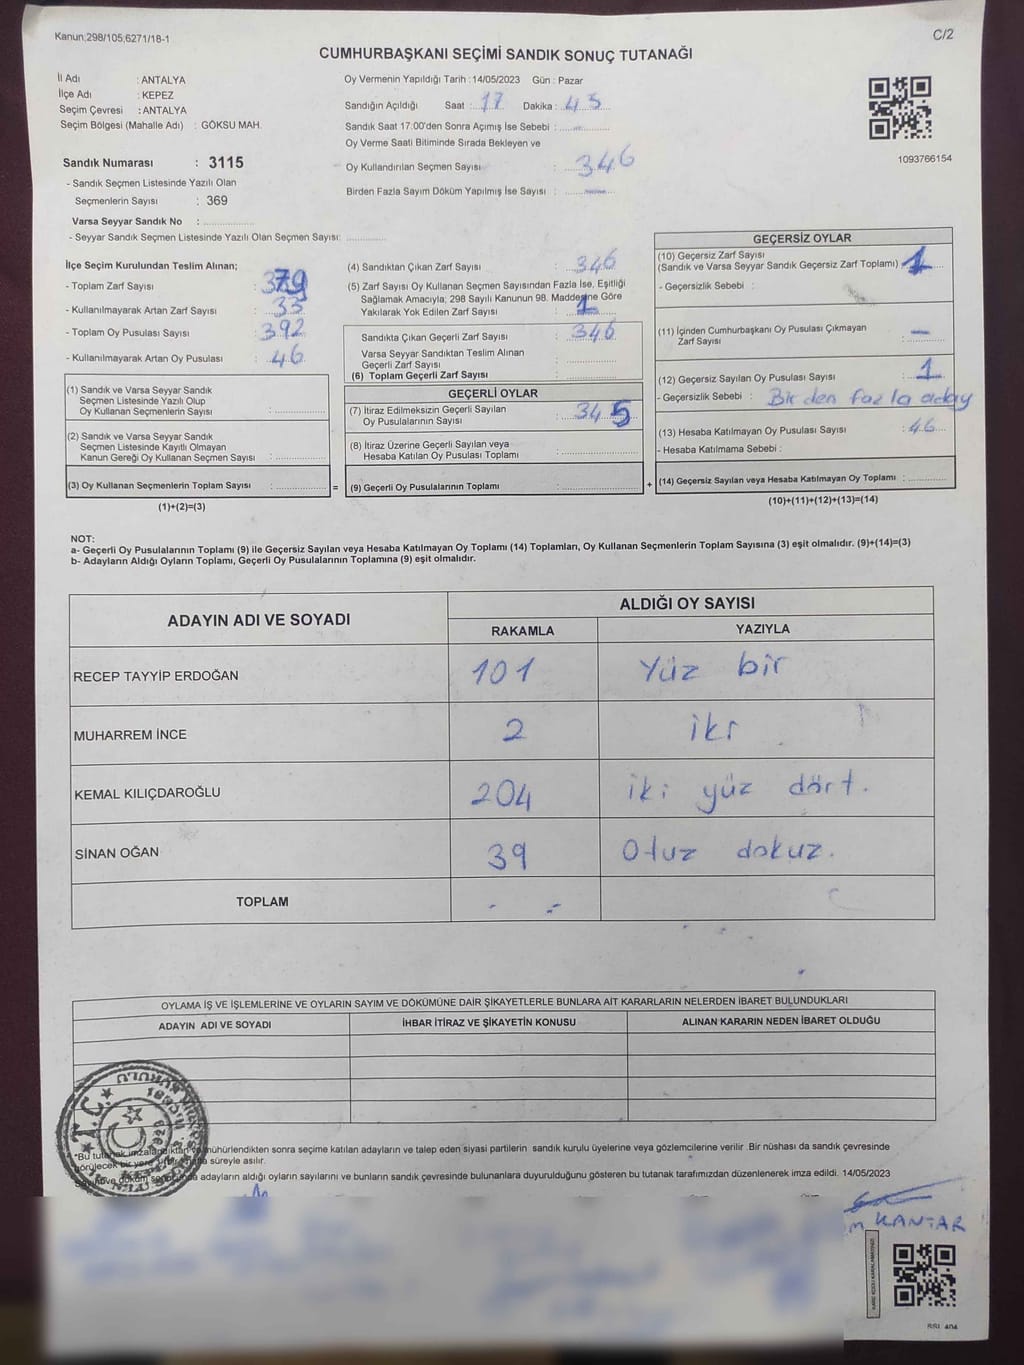 Kanun;298/105;6271/18-1
C/2
CUMHURBAŞKANI SEÇİMİ SANDIK SONUÇ TUTANAĞI
İl Adı : ANTALYA
İlçe Adı : KEPEZ
Seçim Çevresi : ANTALYA
Seçim Bölgesi (Mahalle Adı) : GÖKSU MAH.
Sandık Numarası : 3115
- Sandık Seçmen Listesinde Yazılı Olan
Seçmenlerin Sayısı : 369
Varsa Seyyar Sandık No :
- Seyyar Sandık Seçmen Listesinde Yazılı Olan Seçmen Sayısı:
Oy Vermenin Yapıldığı Tarih : 14/05/2023 Gün : Pazar
Sandığın Açıldığı Saat : 17 Dakika : 45
Sandık Saat 17.00'den Sonra Açımış İse Sebebi :
Oy Verme Saati Bitiminde Sırada Bekleyen ve
Oy Kullandırılan Seçmen Sayısı : 346
Birden Fazla Sayım Döküm Yapılmış İse Sayısı :
1093766154
İlçe Seçim Kurulundan Teslim Alınan;
- Toplam Zarf Sayısı : 379
- Kullanılmayarak Artan Zarf Sayısı : 33
- Toplam Oy Pusulası Sayısı : 392
- Kullanılmayarak Artan Oy Pusulası : 46
(1) Sandık ve Varsa Seyyar Sandık
Seçmen Listesinde Yazılı Olup
Oy Kullanan Seçmenlerin Sayısı :
(2) Sandık ve Varsa Seyyar Sandık
Seçmen Listesinde Kayıtlı Olmayan
Kanun Gereği Oy Kullanan Seçmen Sayısı :
(3) Oy Kullanan Seçmenlerin Toplam Sayısı :
(1)+(2)=(3)
=
(4) Sandıktan Çıkan Zarf Sayısı : 346
(5) Zarf Sayısı Oy Kullanan Seçmen Sayısından Fazla İse, Eşitliği
Sağlamak Amacıyla; 298 Sayılı Kanunun 98. Maddesine Göre
Yakılarak Yok Edilen Zarf Sayısı : 1
Sandıkta Çıkan Geçerli Zarf Sayısı : 346
Varsa Seyyar Sandıktan Teslim Alınan
Geçerli Zarf Sayısı :
(6) Toplam Geçerli Zarf Sayısı :
GEÇERLİ OYLAR
(7) İtiraz Edilmeksizin Geçerli Sayılan
Oy Pusulalarının Sayısı : 345
(8) İtiraz Üzerine Geçerli Sayılan veya
Hesaba Katılan Oy Pusulası Toplamı :
(9) Geçerli Oy Pusulalarının Toplamı :
+
GEÇERSİZ OYLAR
(10) Geçersiz Zarf Sayısı
(Sandık ve Varsa Seyyar Sandık Geçersiz Zarf Toplamı) : 1
- Geçersizlik Sebebi :
(11) İçinden Cumhurbaşkanı Oy Pusulası Çıkmayan
Zarf Sayısı : —
(12) Geçersiz Sayılan Oy Pusulası Sayısı : 1
- Geçersizlik Sebebi : Birden fazla aday
(13) Hesaba Katılmayan Oy Pusulası Sayısı : 46
- Hesaba Katılmama Sebebi :
(14) Geçersiz Sayılan veya Hesaba Katılmayan Oy Toplamı :
(10)+(11)+(12)+(13)=(14)
NOT:
a- Geçerli Oy Pusulalarının Toplamı (9) ile Geçersiz Sayılan veya Hesaba Katılmayan Oy Toplamı (14) Toplamları, Oy Kullanan Seçmenlerin Toplam Sayısına (3) eşit olmalıdır. (9)+(14)=(3)
b- Adayların Aldığı Oyların Toplamı, Geçerli Oy Pusulalarının Toplamına (9) eşit olmalıdır.
ADAYIN ADI VE SOYADI
ALDIĞI OY SAYISI
RAKAMLA YAZIYLA
RECEP TAYYİP ERDOĞAN 101 Yüz bir
MUHARREM İNCE 2 iki
KEMAL KILIÇDAROĞLU 204 iki yüz dört.
SİNAN OĞAN 39 Otuz dokuz.
TOPLAM
OYLAMA İŞ VE İŞLEMLERİNE VE OYLARIN SAYIM VE DÖKÜMÜNE DAİR ŞİKAYETLERLE BUNLARA AİT KARARLARIN NELERDEN İBARET BULUNDUKLARI
ADAYIN ADI VE SOYADI İHBAR İTİRAZ VE ŞİKAYETİN KONUSU ALINAN KARARIN NEDEN İBARET OLDUĞU
T.C.
*Bu tutanak imzalandıktan ve mühürlendikten sonra seçime katılan adayların ve talep eden siyasi partilerin sandık kurulu üyelerine veya gözlemcilerine verilir. Bir nüshası da sandık çevresinde
görülecek bir yere bir hafta süreyle asılır.
adayların aldığı oyların sayılarını ve bunların sandık çevresinde bulunanlara duyurulduğunu gösteren bu tutanak tarafımızdan düzenlenerek imza edildi. 14/05/2023
KANTAR